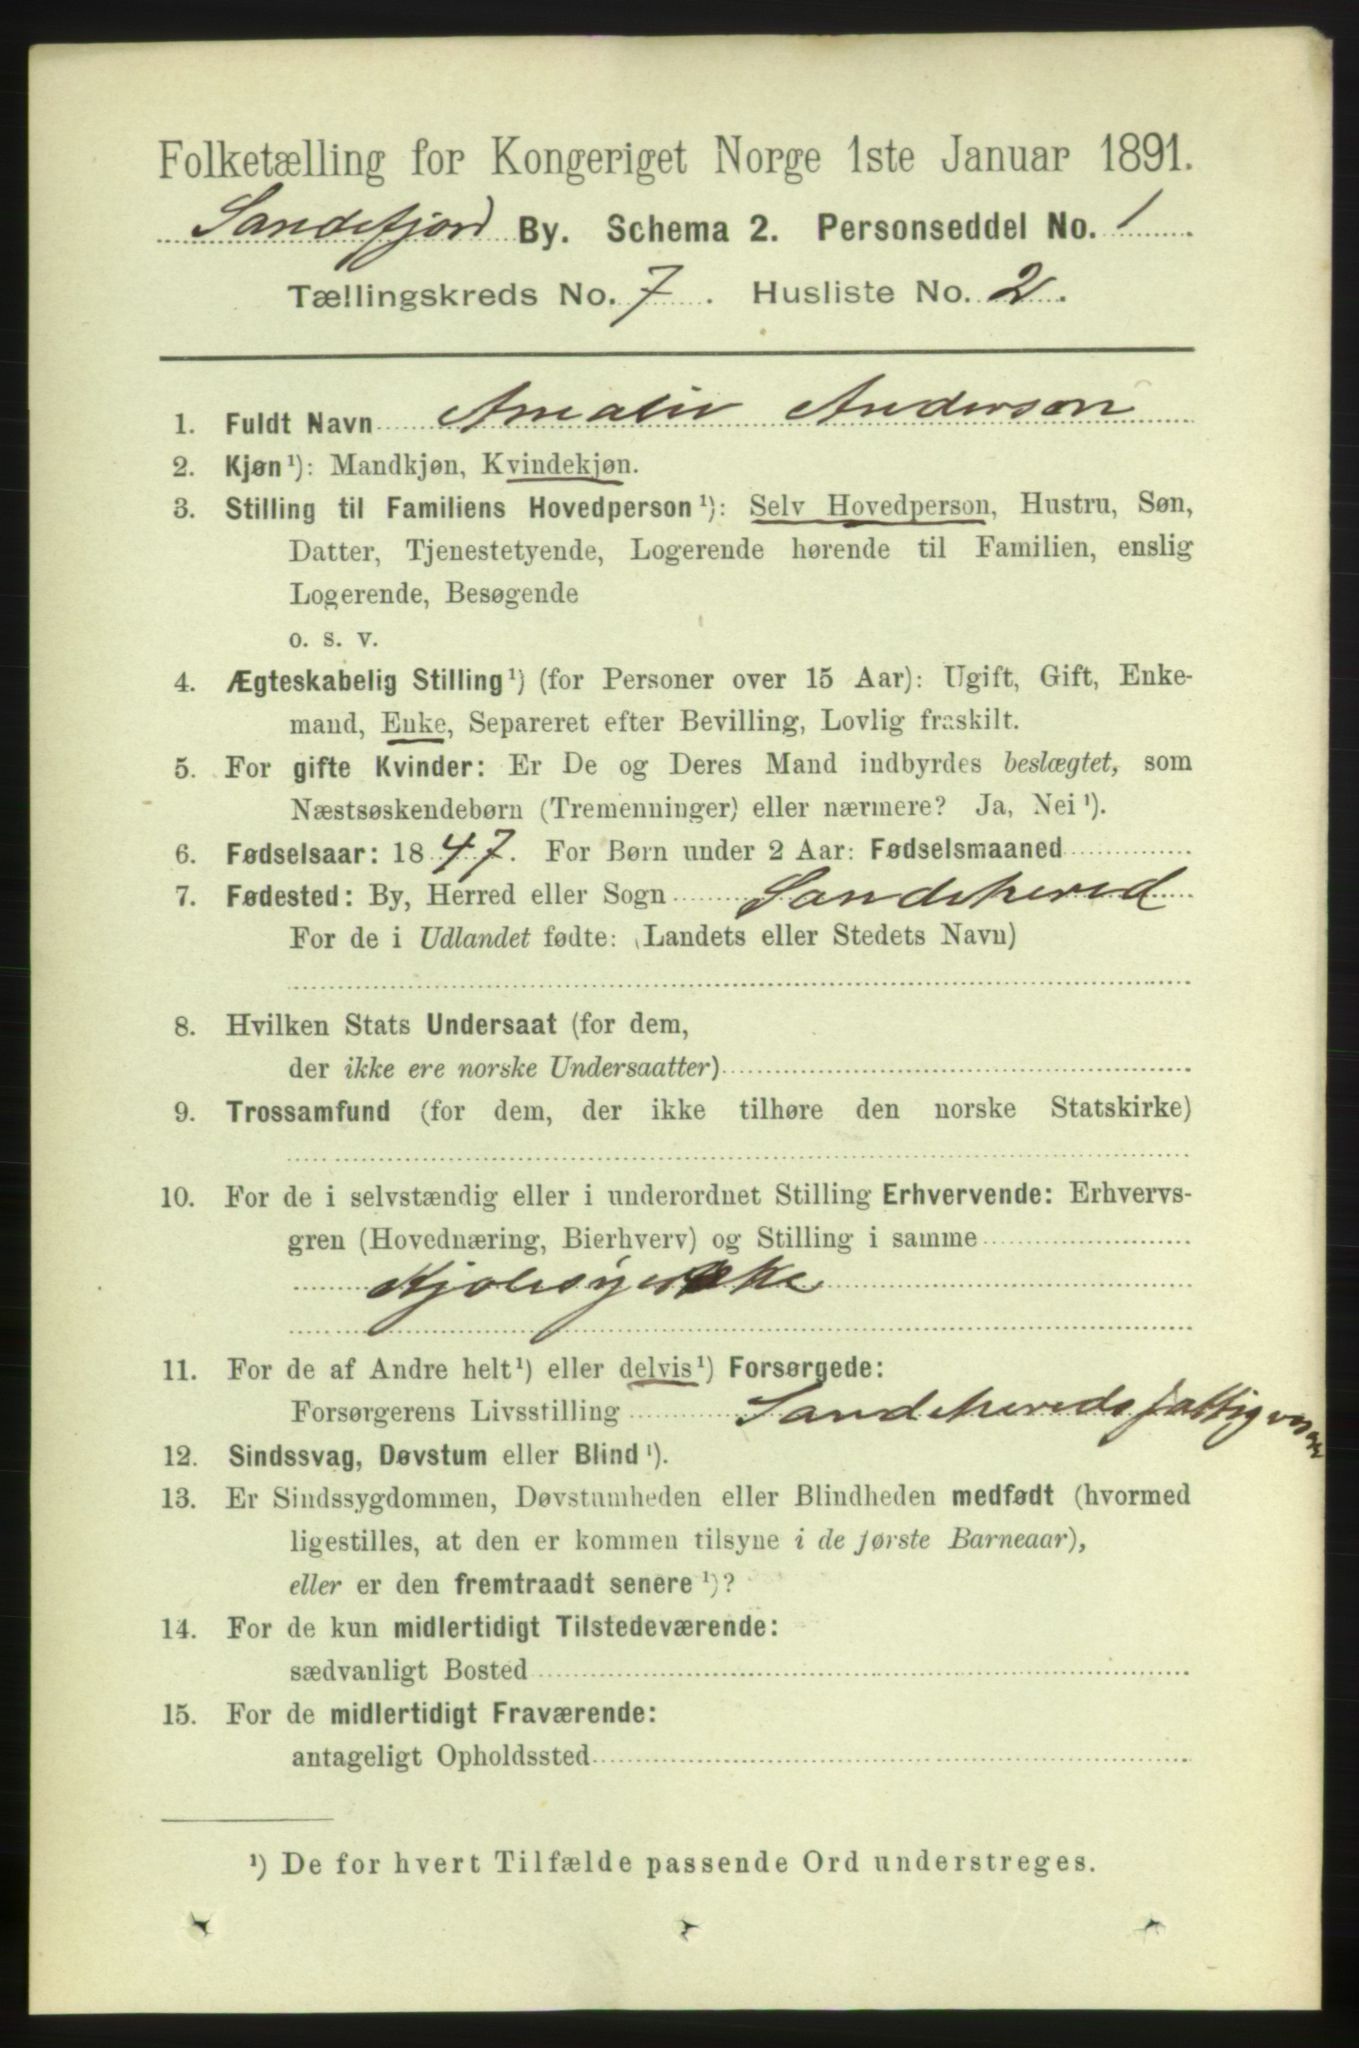 Folketælling for Kongeriget Norge 1ste Januar 1891.
Sandefjord By. Schema 2. Personseddel No. 1
Tællingskreds No. 7. Husliste No. 2.
1. Fuldt Navn Amalie Anderson
2. Kjøn¹): Mandkjøn, Kvindekjøn.
3. Stilling til Familiens Hovedperson¹): Selv Hovedperson, Hustru, Søn,
Datter, Tjenestetyende, Logerende hørende til Familien, enslig
Logerende, Besøgende
o. s. v.
4. Ægteskabelig Stilling¹) (for Personer over 15 Aar): Ugift, Gift, Enke-
mand, Enke, Separeret efter Bevilling, Lovlig fraskilt.
5. For gifte Kvinder: Er De og Deres Mand indbyrdes beslægtet, som
Næstsøskendebørn (Tremenninger) eller nærmere? Ja, Nei¹).
6. Fødselsaar: 1847. For Børn under 2 Aar: Fødselsmaaned
7. Fødested: By, Herred eller Sogn Sandeherred
For de i Udlandet fødte: (Landets eller Stedets Navn)
8. Hvilken Stats Undersaat (for dem,
der ikke ere norske Undersaatter)
9. Trossamfund (for dem, der ikke tilhøre den norske Statskirke)
10. For de i selvstændig eller i underordnet Stilling Erhvervende: Erhvervs-
gren (Hovednæring, Bierhverv) og Stilling i samme
Kjolesyerske
11. For de af Andre helt¹) eller delvis¹) Forsørgede:
Forsørgerens Livsstilling Sandeherreds fattigvæsen
12. Sindssvag, Døvstum eller Blind¹).
13. Er Sindssygdommen, Døvstumheden eller Blindheden medfødt (hvormed
ligestilles, at den er kommen tilsyne i de første Barneaar),
eller er den fremtraadt senere¹)?
14. For de kun midlertidigt Tilstedeværende:
sædvanligt Bosted
15. For de midlertidigt Fraværende:
antageligt Opholdssted
¹) De for hvert Tilfælde passende Ord understreges.